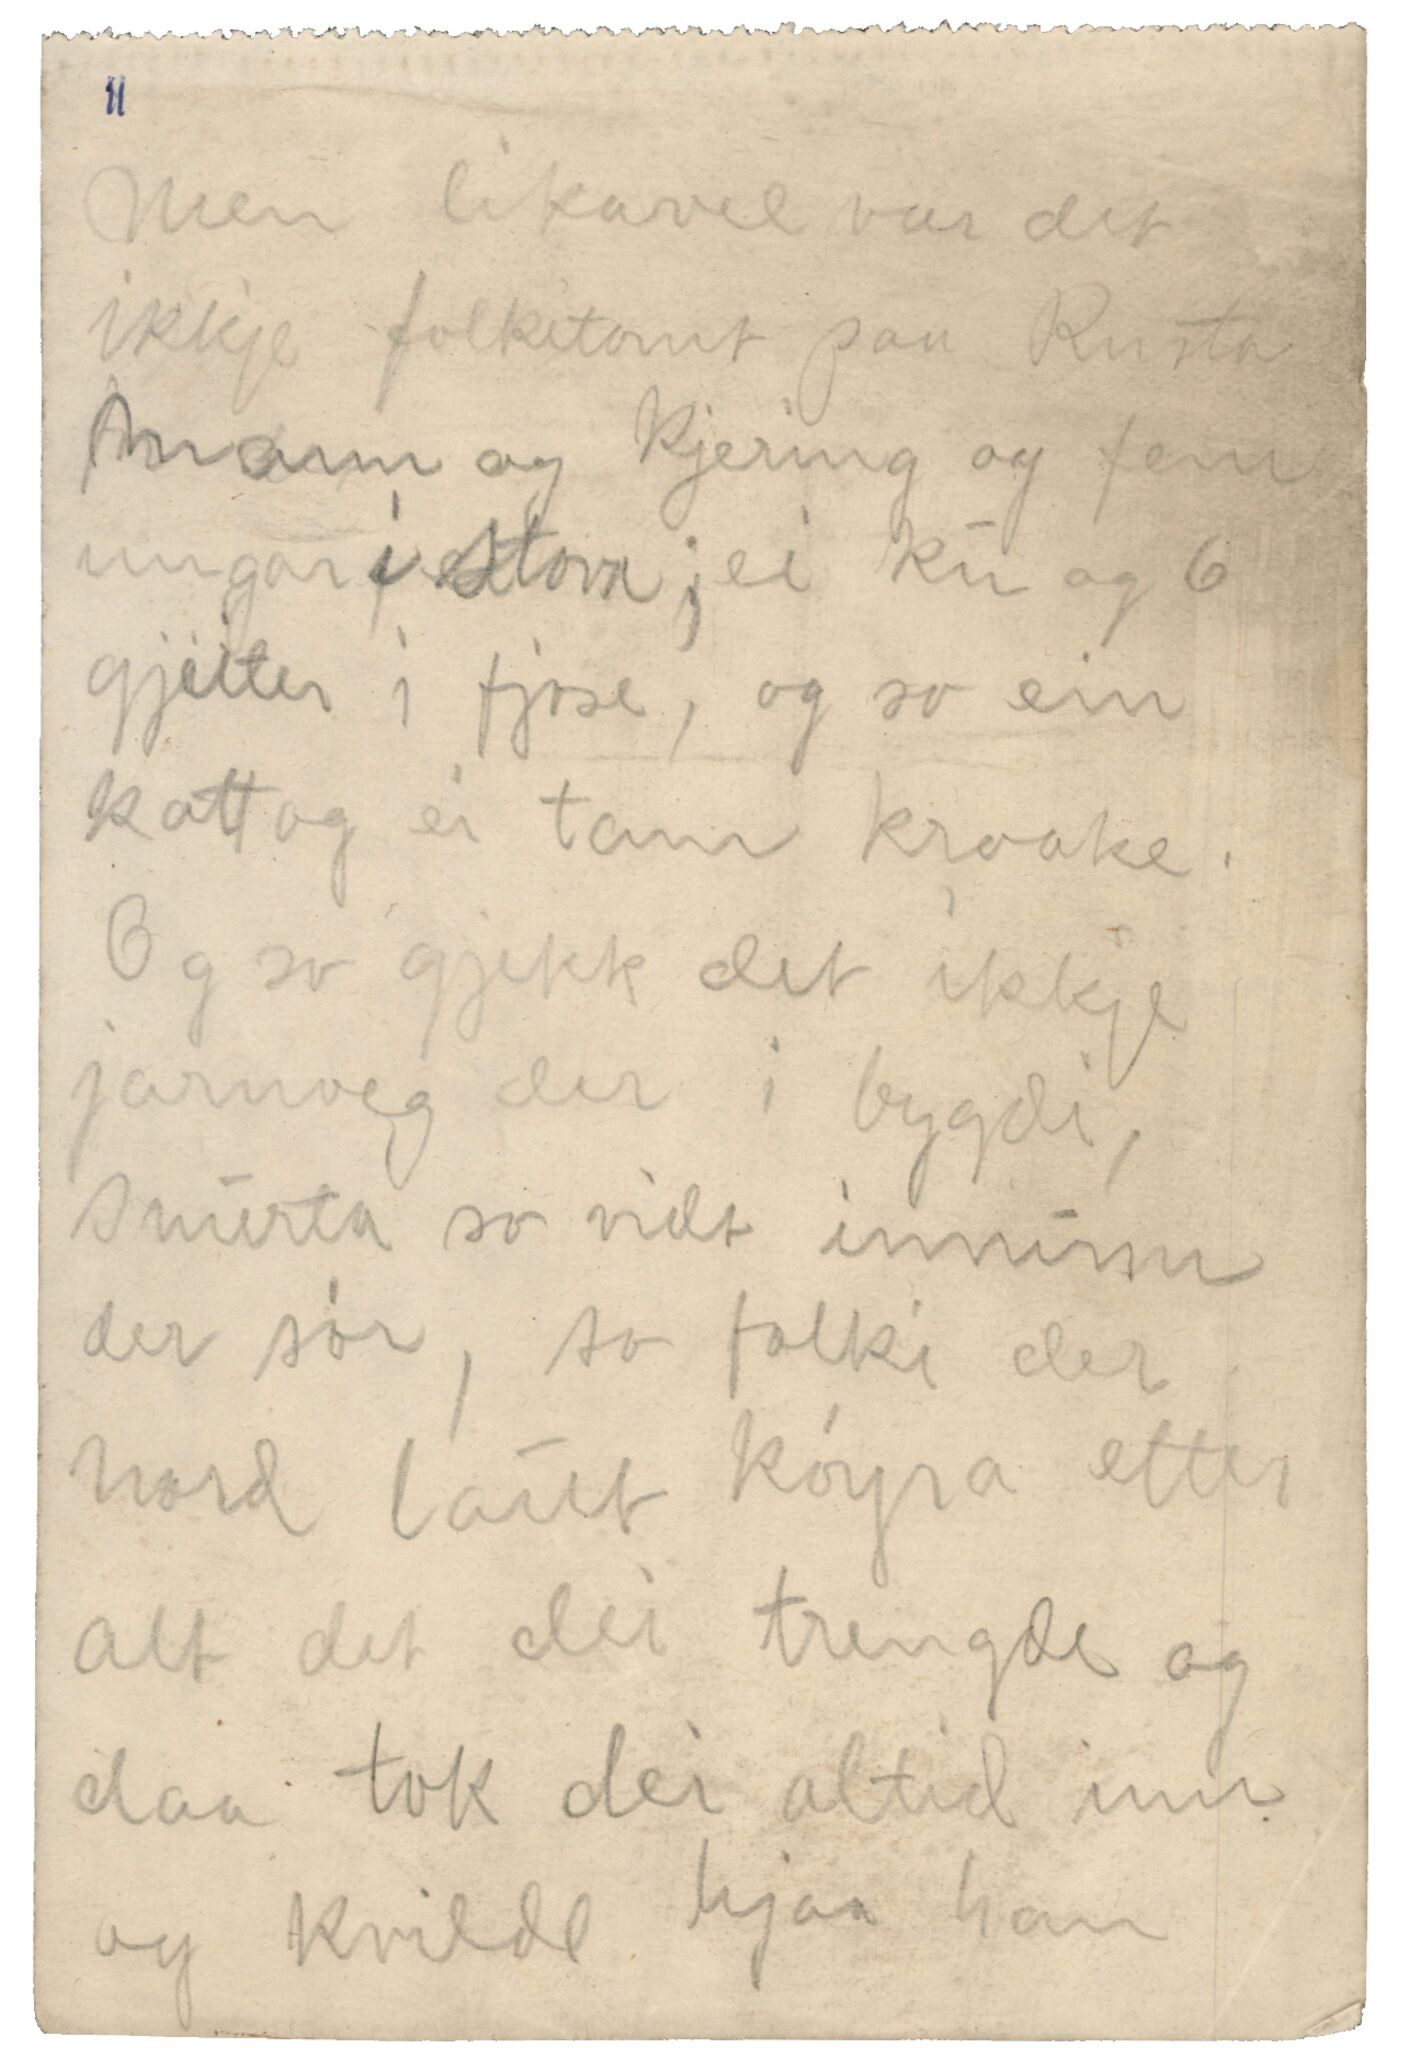 11
Men likavel var det
ikkje folketomt paa Rusta
Mann og Kjering og fem
ungar i stova; ei ku og 6
gjeiter i fjose, og so ein
katt og ei tam kraake.
Og so gjekk det ikkje
jarnveg der i bygdi,
so vidt innum
der sør, so folki der
nord laut køyra etter
alt det dei trengde og
daa tok dei altid inn
og kvilde hjaa han